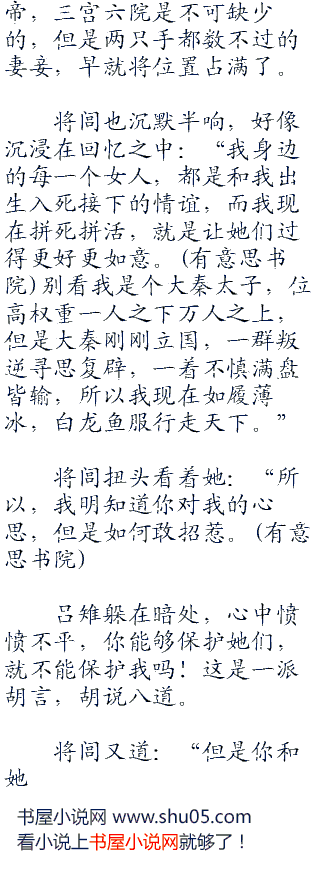 帝，三宫六院是不可缺少
的，但是两只手都数不过的
妻妾，早就将位置占满了。
将闾也沉默半响，好像
沉浸在回忆之中：“我身边
的每一个女人，都是和我出
生入死接下的情谊，而我现
在拼死拼活，就是让她们过
得更好更如意。(有意思书
院)别看我是个大秦太子，位
高权重一人之下万人之上，
但是大秦刚刚立国，一群叛
逆寻思复辟，一着不慎满盘
皆输，所以我现在如履薄
冰，白龙鱼服行走天下。”
将闾扭头看着她：“所
以，我明知道你对我的心
思，但是如何敢招惹。(有意
思书院)
吕雉躲在暗处，心中愤
愤不平，你能够保护她们，
就不能保护我吗！这是一派
胡言，胡说八道。
将闾又道：“但是你和
她
书屋小说网 www.shu05.com
看小说上书屋小说网就够了！